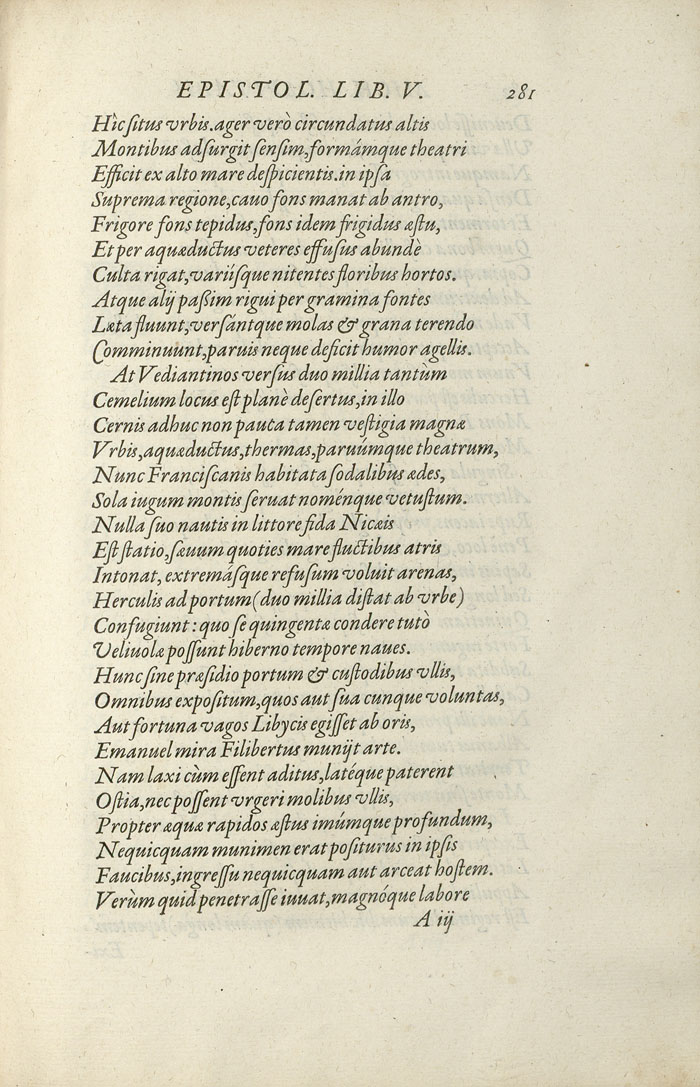 EPISTOL. LIB. V. 281
Hìc ſitus vrbis. ager verò circundatus altis
Montibus adſurgit ſenſim, formámque theatri
Efficit ex alto mare deſpicientis. in ipſa
Suprema regione, cauo fons manat ab antro,
Frigore fons tepidus, fons idem frigidus æſtu,
Et per aquæductus veteres effuſus abundè
Culta rigat, variíſque nitentes floribus hortos.
Atque alij paßim rigui per gramina fontes
Læta fluunt, verſántque molas & grana terendo
Comminuunt, paruis neque deficit humor agellis.
At Vediantinos verſus duo millia tantùm
Cemelium locus eſt planè deſertus, in illo
Cernis adhuc non pauca tamen veſtigia magnæ
Vrbis, aquæductus, thermas, paruúmque theatrum,
Nunc Franciſcanis habitata ſodalibus ædes,
Sola iugum montis ſeruat noménque vetuſtum.
Nulla ſuo nautis in littore fida Nicæis
Eſt ſtatio, ſæuum quoties mare fluctibus atris
Intonat, extremáſque refuſum voluit arenas,
Herculis ad portum (duo millia diſtat ab vrbe)
Confugiunt: quo ſe quingentæ condere tutò
Veliuolæ poſſunt hiberno tempore naues.
Hunc ſine præſidio portum & cuſtodibus vllis,
Omnibus expoſitum, quos aut ſua cunque voluntas,
Aut fortuna vagos Libycis egiſſet ab oris,
Emanuel mira Filibertus munijt arte.
Nam laxi cùm eſſent aditus, latéque paterent
Oſtia, nec poſſent vrgeri molibus vllis,
Propter æquæ rapidos æſtus imúmque profundum,
Nequicquam munimen erat poſiturus in ipſis
Faucibus, ingreſſu nequicquam aut arceat hoſtem.
Verùm quid penetraſſe iuuat, magnóque labore
A iij